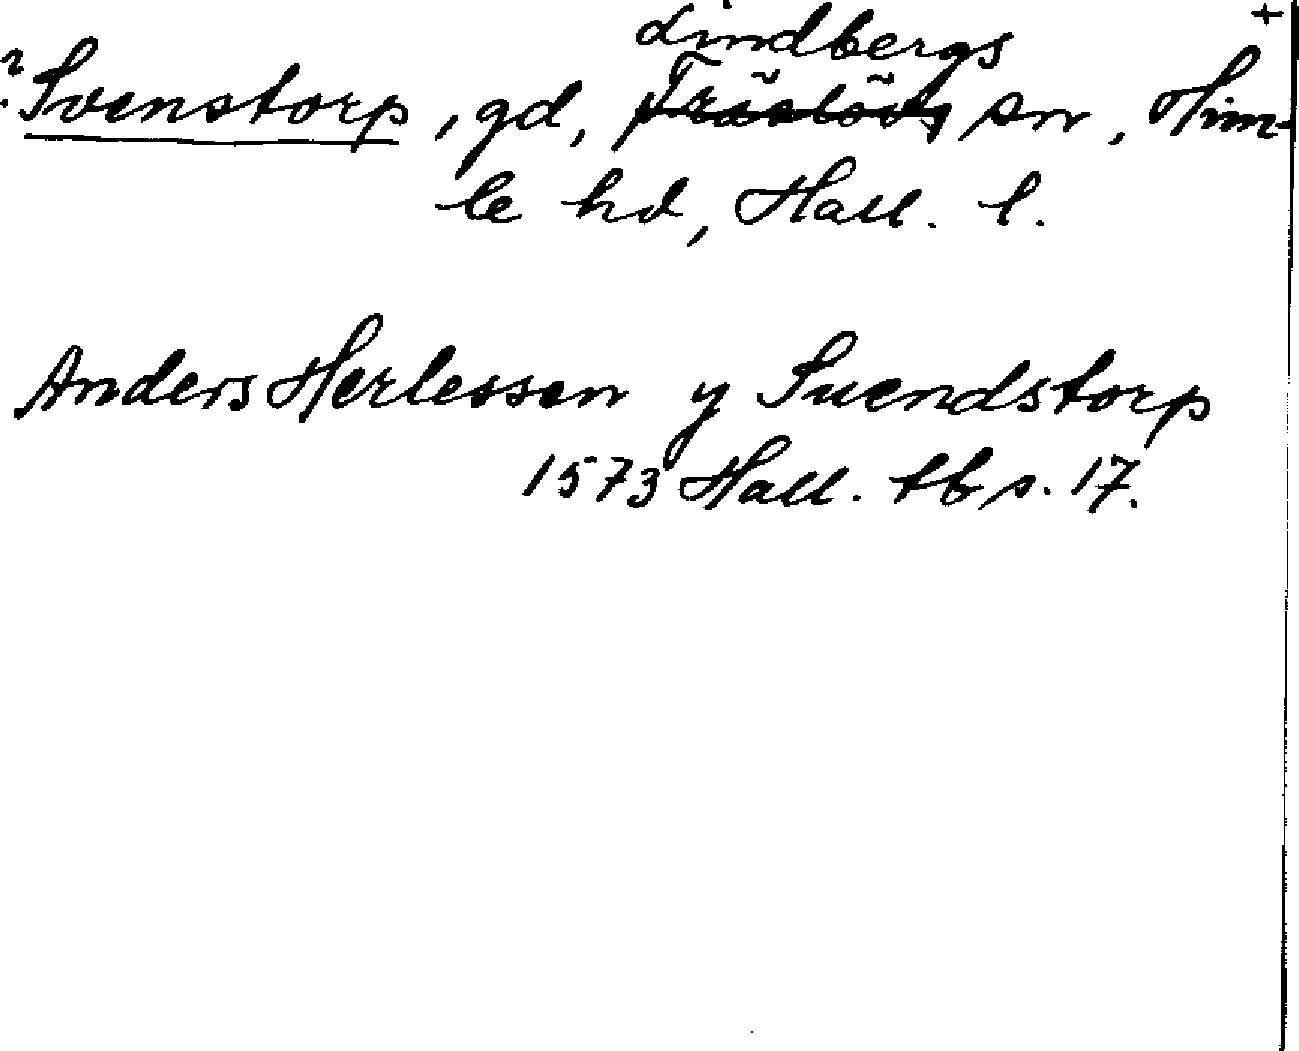 Lindbergs +
? Svenstorp, gd, Träslövs sn, Him-
le hd, Hall. l.
Anders Herlessen y Suendstorp
1573 Hall. tb s. 17.